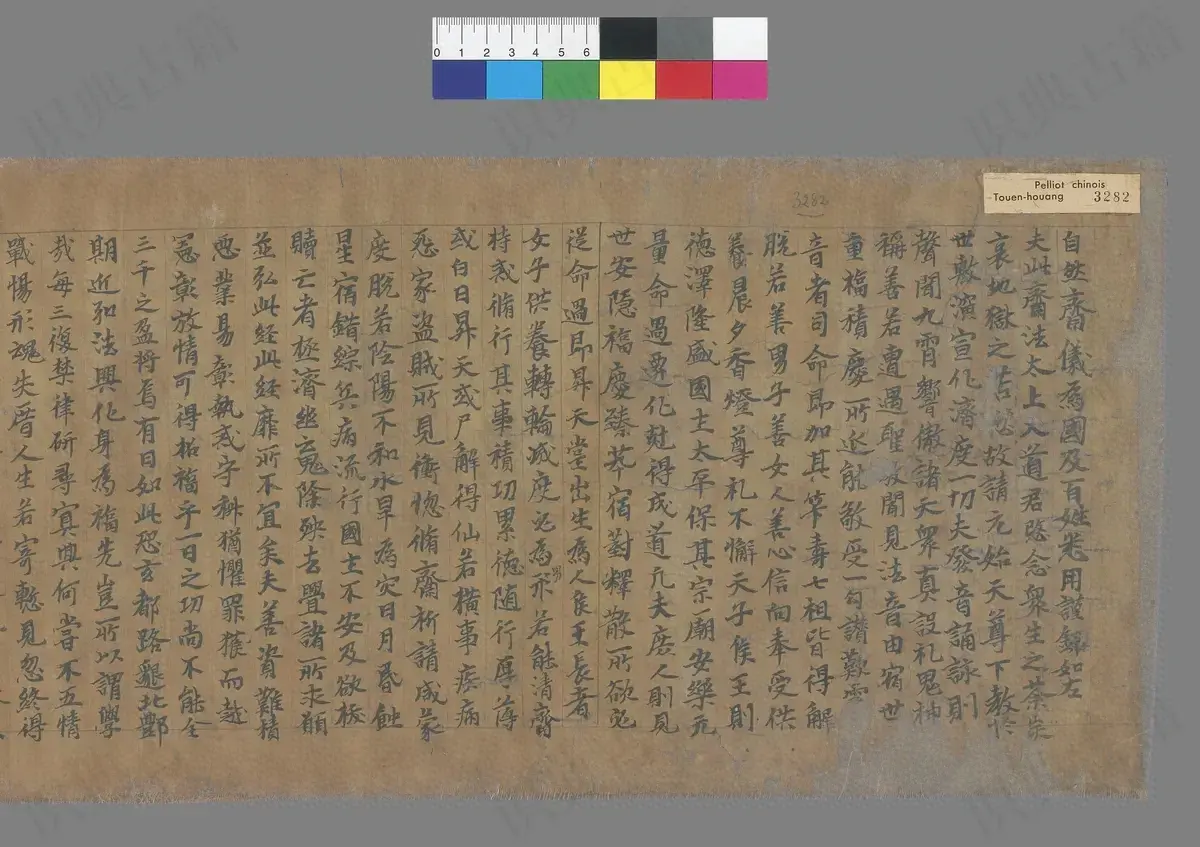 Pelliot chinois
Touen-houang 3282
3282
0 1 2 3 4 5 6
自然齋儀為國及百姓恙用謹錄如左
夫此齋法太上大道君愍念眾生之荼炭
哀地獄之苦故請元始天尊下教於
世敷演宣化濟度一切夫發音誦詠則
聲聞九霄響徹諸天眾真設礼鬼神
稱善若遭遇聖教聞見法音由宿世
重福積慶所逮能敏受一句讚歎云
音者司命即加其筭壽七祖皆得解
脫若善男子善女人善心信向奉受供
養晨夕香燈尊礼不懈天子侯王則
德澤隆盛國土太平保其宗廟安樂无
量命過遷化尅得成道凡夫庶人則見
世安隱福慶臻萃宿對釋散所欲
從命過即昇天堂出生為人侯王長者
女子供養轉輪滅度男為形若能清齋
持戒脩行其事積功累德随行厚薄
或白日昇天或尸解得仙若橫事疾病
惡家盜賊所見衝惚脩齋祈請咸蒙
度脫若陰陽不和水旱為灾日月昏蝕
星宿錯綜兵病流行國主不安及欲拔
贖亡者極濟幽魂除殃去舋諸所求願
並弘此經此經靡所不冝矣夫善資難積
惡業易彰執戒守科猶懼罪獲而越
憲彰放情可得招福乎一日之功尚不能全
三千之盈將焉有日如此恐玄都路邈北酆
期近弘法興化身為福先豈所以謂學
哉每三復禁律研尋寘典何嘗不五情
戰惕形魂失厝人生若寄慙見忽終得